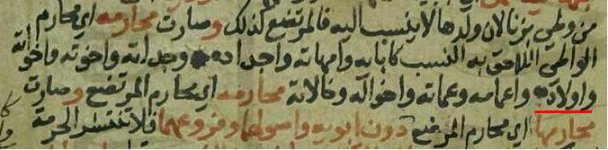 من وطي بزنا لان ولدها لا ينسب اليه فالمرتضع كذلك وصارت محارمه اي محارم
الواطي اللاحق به النسب كابايه وامهاته واجداده وجداته واخوته واخواته
واولاده واعمامه وعماته واخواله وخالاته محارمه اي محارم المرتضع وصارت
محارمها اي محارم المرضع دون ابويه واصولهما وفروعهما فلا تنتشر الحرمة